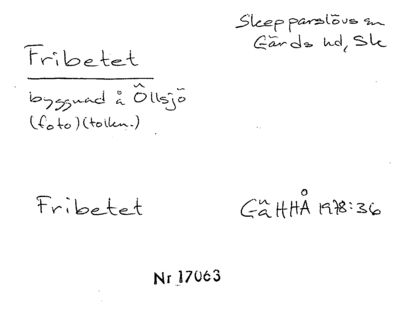 Skepparslövs sn
Gärds hd, Sk
Fribetet
byggnad å Ôllsjö
(foto) (tolkn.)
Fribetet
GäHHÅ 1978:36
Nr 17063